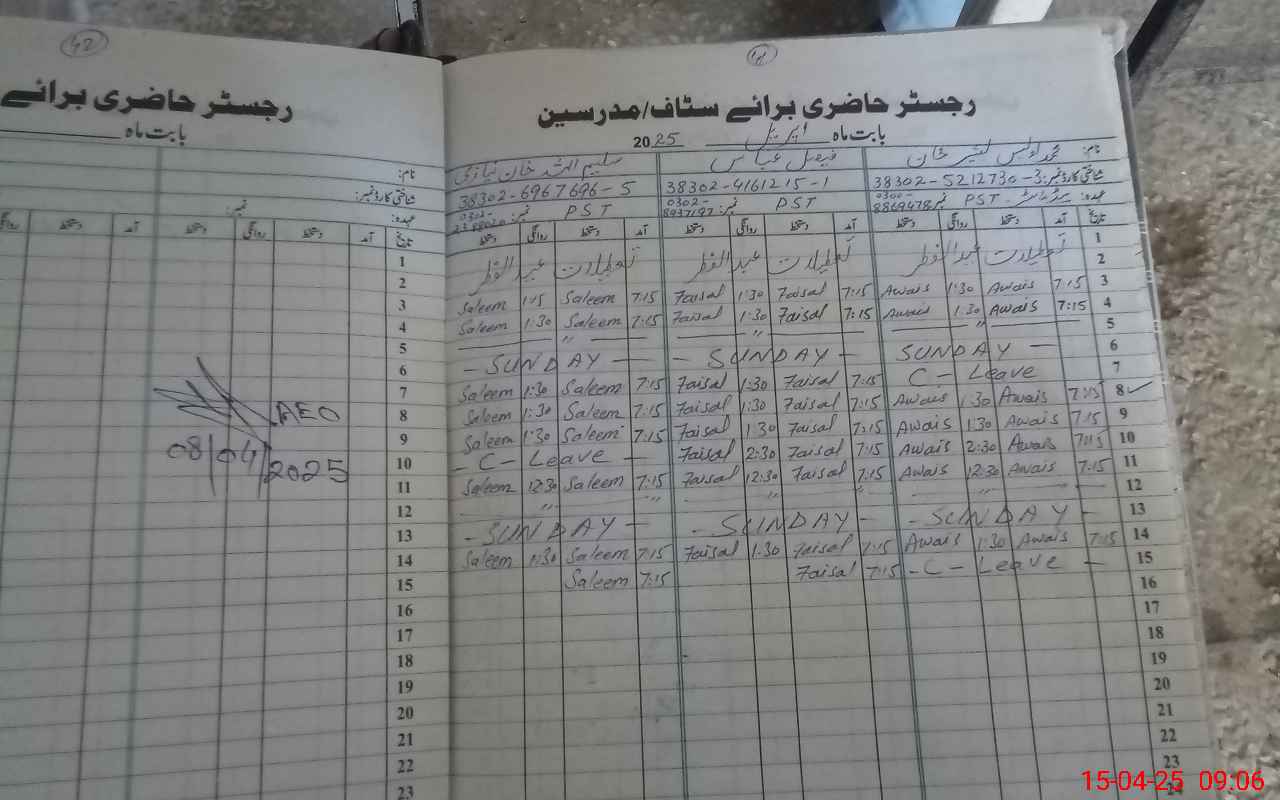 42
رجسٹر حاضری برائے
بابت ماہ
نام:
شناختی کارڈ نمبر:
عہدہ: نمبر:
تاریخ آمد دستخط روانگی دستخط آمد دستخط روانگی
1
2
3
4
5
6
7
8
9
10
11
12
13
14
15
16
17
18
19
20
21
22
23
AEO
08/04/2025
رجسٹر حاضری برائے سٹاف/مدرسین
بابت ماہ اپریل 2025
نام: محمد اویس خان فیصل عباس سلیم خان نیازی
شناختی کارڈ نمبر: 38302-5212730-3 38302-4161215-1 38302-6967696-5
عہدہ: PST نمبر 0300-8869478 PST نمبر: 0302-8937197 PST نمبر: 0302-
تاریخ آمد دستخط روانگی دستخط آمد دستخط روانگی دستخط آمد دستخط روانگی دستخط
1
2 تعطیلات عید الفطر تعطیلات عید الفطر تعطیلات عید الفطر
Saleem 1:15 Saleem 7:15 Faisal 1:30 Faisal 7:15 Awais 1:30 Awais 7:15 3
Saleem 1:30 Saleem 7:15 Faisal 1:30 Faisal 7:15 Awais 1:30 Awais 7:15 4
— " — — " — — " — 5
- SUNDAY — - SUNDAY - SUNDAY - 6
Saleem 1:30 Saleem 7:15 Faisal 1:30 Faisal 7:15 C - Leave 7
Saleem 1:30 Saleem 7:15 Faisal 1:30 Faisal 7:15 Awais 1:30 Awais 7:15 8 ✓
Saleem 1:30 Saleem 7:15 Faisal 1:30 Faisal 7:15 Awais 1:30 Awais 7:15 9
- C - Leave — Faisal 2:30 Faisal 7:15 Awais 2:30 Awais 7:15 10
Saleem 12:30 Saleem 7:15 Faisal 12:30 Faisal 7:15 Awais 12:30 Awais 7:15 11
— " — " — " — " — " — 12
- SUNDAY - - SUNDAY - - SUNDAY - 13
Saleem 1:30 Saleem 7:15 Faisal 1:30 Faisal 7:15 Awais 1:30 Awais 7:15 14
Saleem 7:15 Faisal 7:15 - C - Leave — 15
16
17
18
19
20
21
22
23
24
15-04-25 09:06